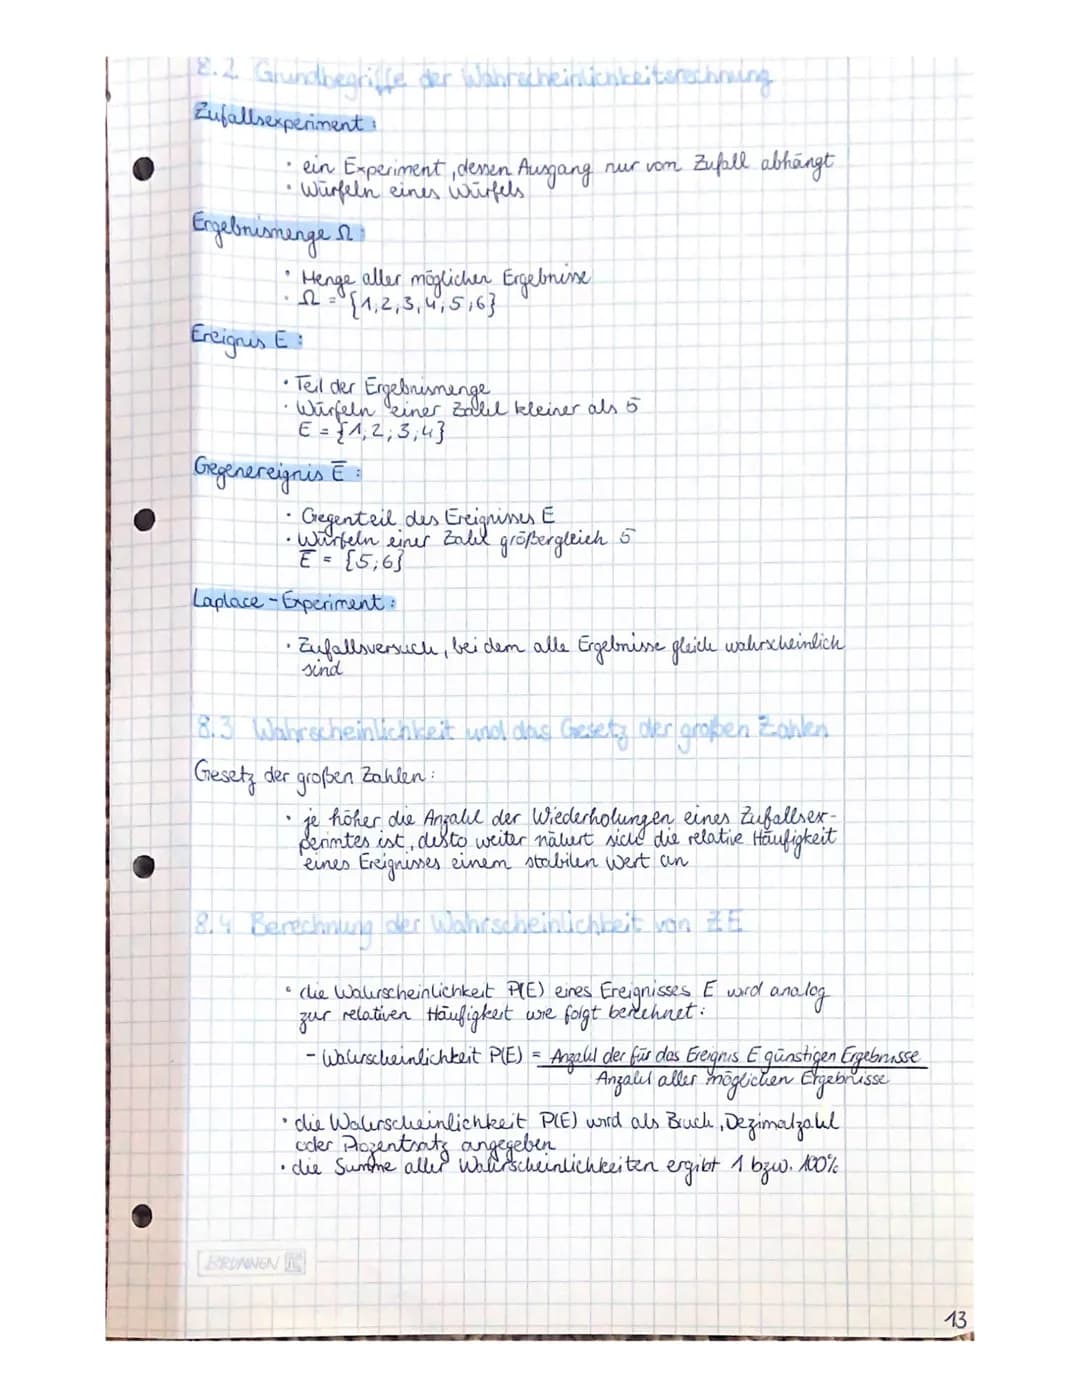 8.2 Grundbegriffe der Wahrscheinlichkeitsrechnung
Zufallsexperiment:
• ein Experiment, dessen Ausgang nur vom Zufall abhängt
• Würfeln eines Würfels
Ergebnismenge Ω:
• Menge aller möglichen Ergebnisse
• Ω = {1,2,3,4,5,6}
Ereignis E:
• Teil der Ergebnismenge
• Würfeln einer Zahl kleiner als 5
E = {1,2,3,4}
Gegenereignis E̅:
• Gegenteil des Ereignisses E
• Würfeln einer Zahl größergleich 5
E̅ = {5;6}
Laplace-Experiment:
• Zufallsversuch, bei dem alle Ergebnisse gleich wahrscheinlich
sind
8.3 Wahrscheinlichkeit und das Gesetz der großen Zahlen
Gesetz der großen Zahlen:
• je höher die Anzahl der Wiederholungen eines Zufallsex-
perimtes ist, desto weiter nähert sich die relative Häufigkeit
eines Ereignisses einem stabilen Wert an
8.4 Berechnung der Wahrscheinlichkeit von ZE
• die Wahrscheinlichkeit P(E) eines Ereignisses E wird analog
zur relativen Häufigkeit wie folgt berechnet:
- Wahrscheinlichkeit P(E) = Anzahl der für das Ereignis E günstigen Ergebnisse
Anzahl aller möglichen Ergebnisse
• die Wahrscheinlichkeit P(E) wird als Bruch, Dezimalzahl
oder Prozentsatz angegeben
• die Summe aller Wahrscheinlichkeiten ergibt 1 bzw. 100%
BRUNNEN
13